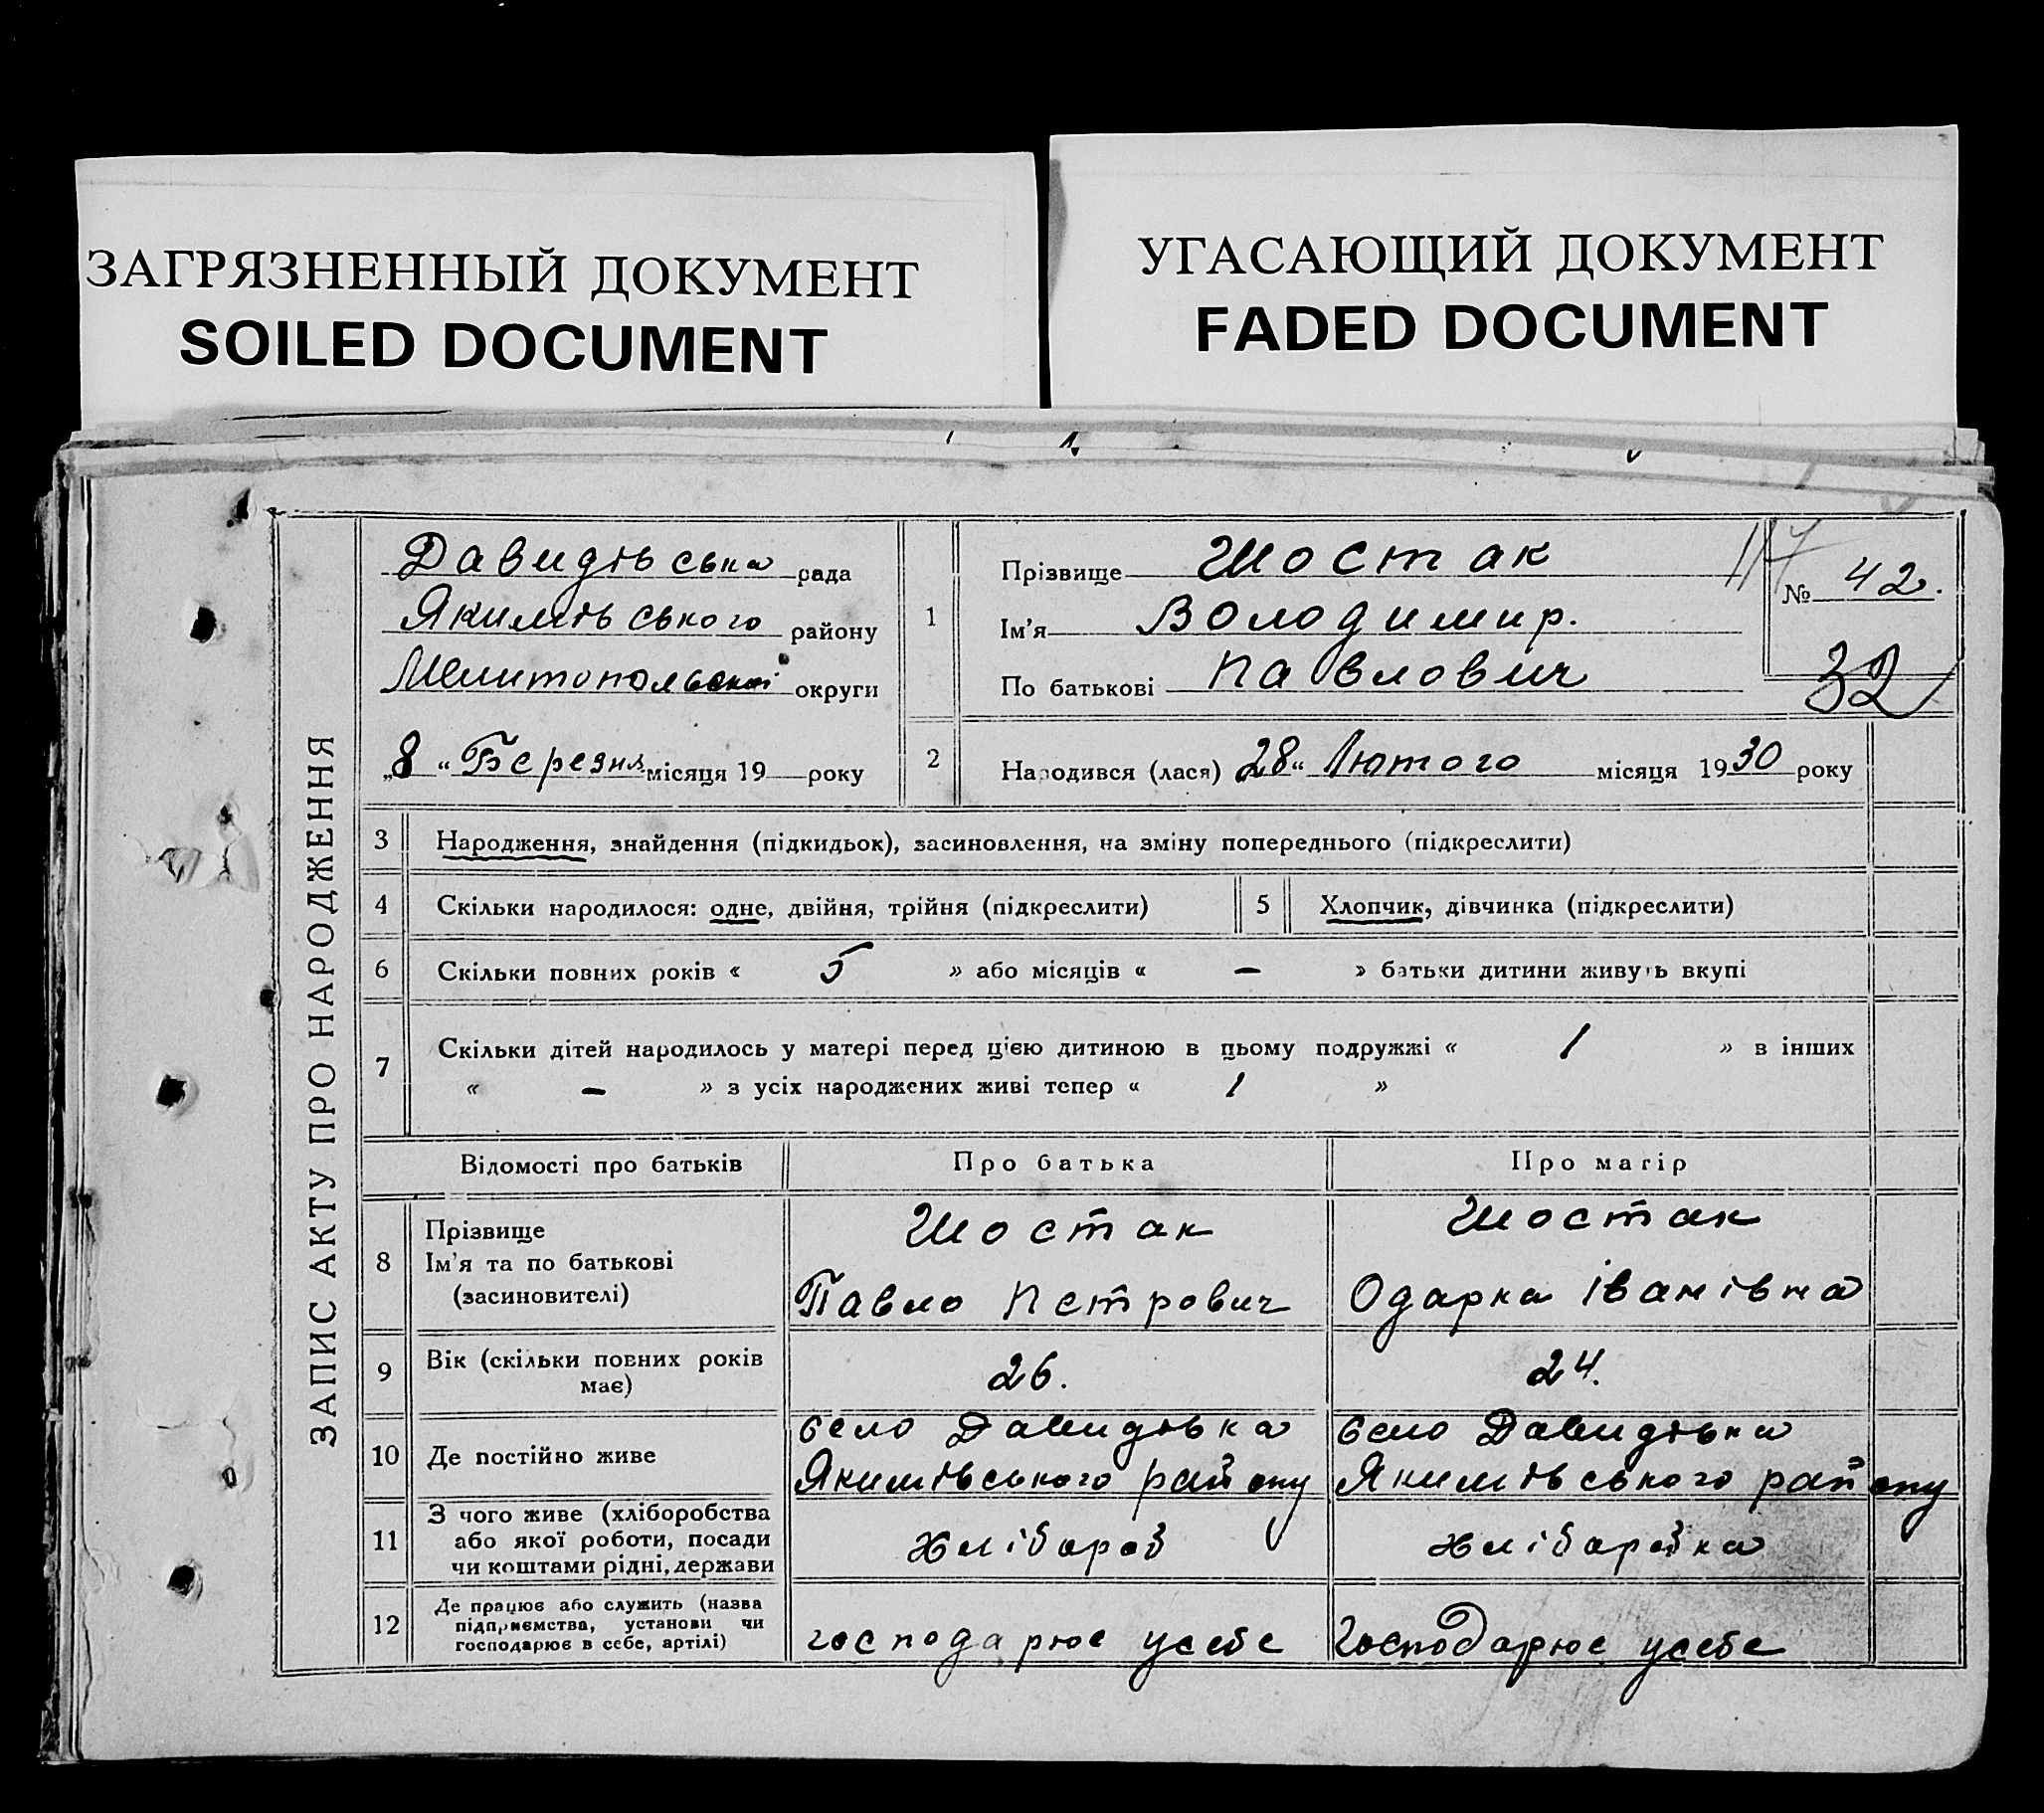 ЗАГРЯЗНЕННЫЙ ДОКУМЕНТ
SOILED DOCUMENT
УГАСАЮЩИЙ ДОКУМЕНТ
FADED DOCUMENT
ЗАПИС АКТУ ПРО НАРОДЖЕННЯ
Давидівська рада
Якимівського району
Мелитопольської округи
„8 “ Березня місяця 19 року
1
Прізвище Шостак
Ім'я Володимир.
По батькові Павлович
117
№ 42.
32
2
Народився (лася) 28 “ Лютого місяця 1930 року
3 Народження, знайдення (підкидьок), засиновлення, на зміну попереднього (підкреслити)
4 Скільки народилося: одне, двійня, трійня (підкреслити) 5 Хлопчик, дівчинка (підкреслити)
6 Скільки повних років « 5 » або місяців « – » батьки дитини живуть вкупі
7 Скільки дітей народилось у матері перед цією дитиною в цьому подружжі « 1 » в інших
« – » з усіх народжених живі тепер « 1 »
Відомості про батьків Про батька Про матір
8 Прізвище
Ім'я та по батькові
(засиновителі)
Шостак
Павло Петрович
Шостак
Одарка Іванівна
9 Вік (скільки повних років
має)
26.
24.
10 Де постійно живе
село Давидівка
Якимівського району
село Давидівка
Якимівського району
11 З чого живе (хліборобства
або якої роботи, посади
чи коштами рідні, держави
хлібороб
хліборобка
12 Де працює або служить (назва
підприємства, установи чи
господарює в себе, артілі)
господарює усебе
Господарює усебе